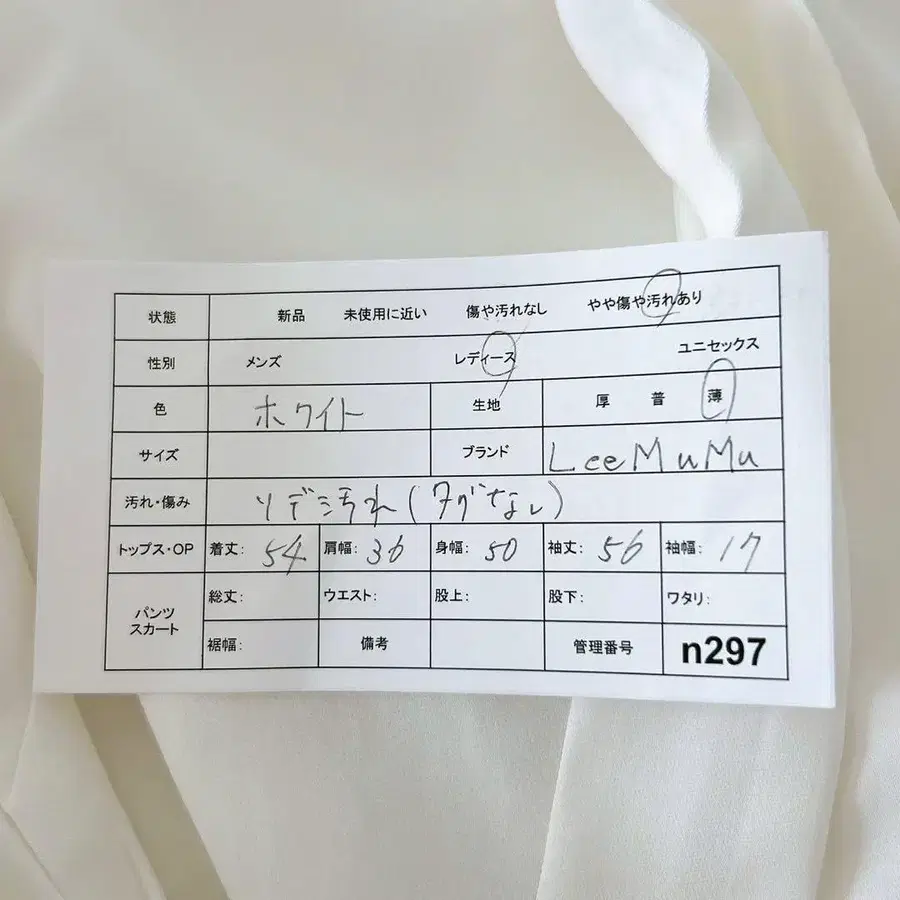 状態 新品 未使用に近い 傷や汚れなし やや傷や汚れあり
性別 メンズ レディース ユニセックス
色 ホワイト 生地 厚 普 薄
サイズ ブランド LeeMuMu
汚れ・傷み ソデ汚れ(タグなし)
トップス・OP 着丈: 54 肩幅: 36 身幅: 50 袖丈: 56 袖幅: 17
パンツ
スカート
総丈: ウエスト: 股上: 股下: ワタリ:
裾幅: 備考 管理番号 n297